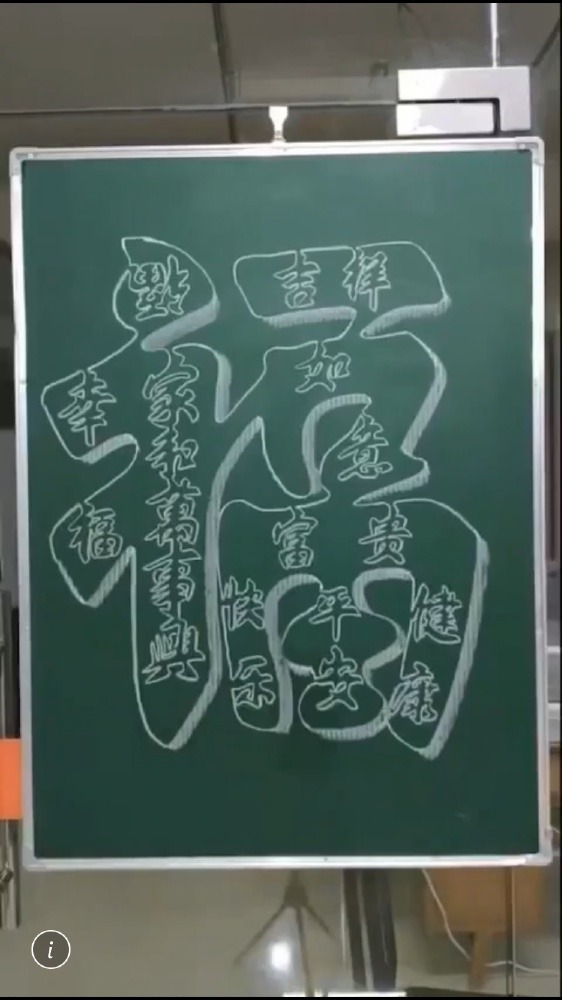 吉祥
如意
幸福
家和萬事興
富贵
快乐
平安
健康